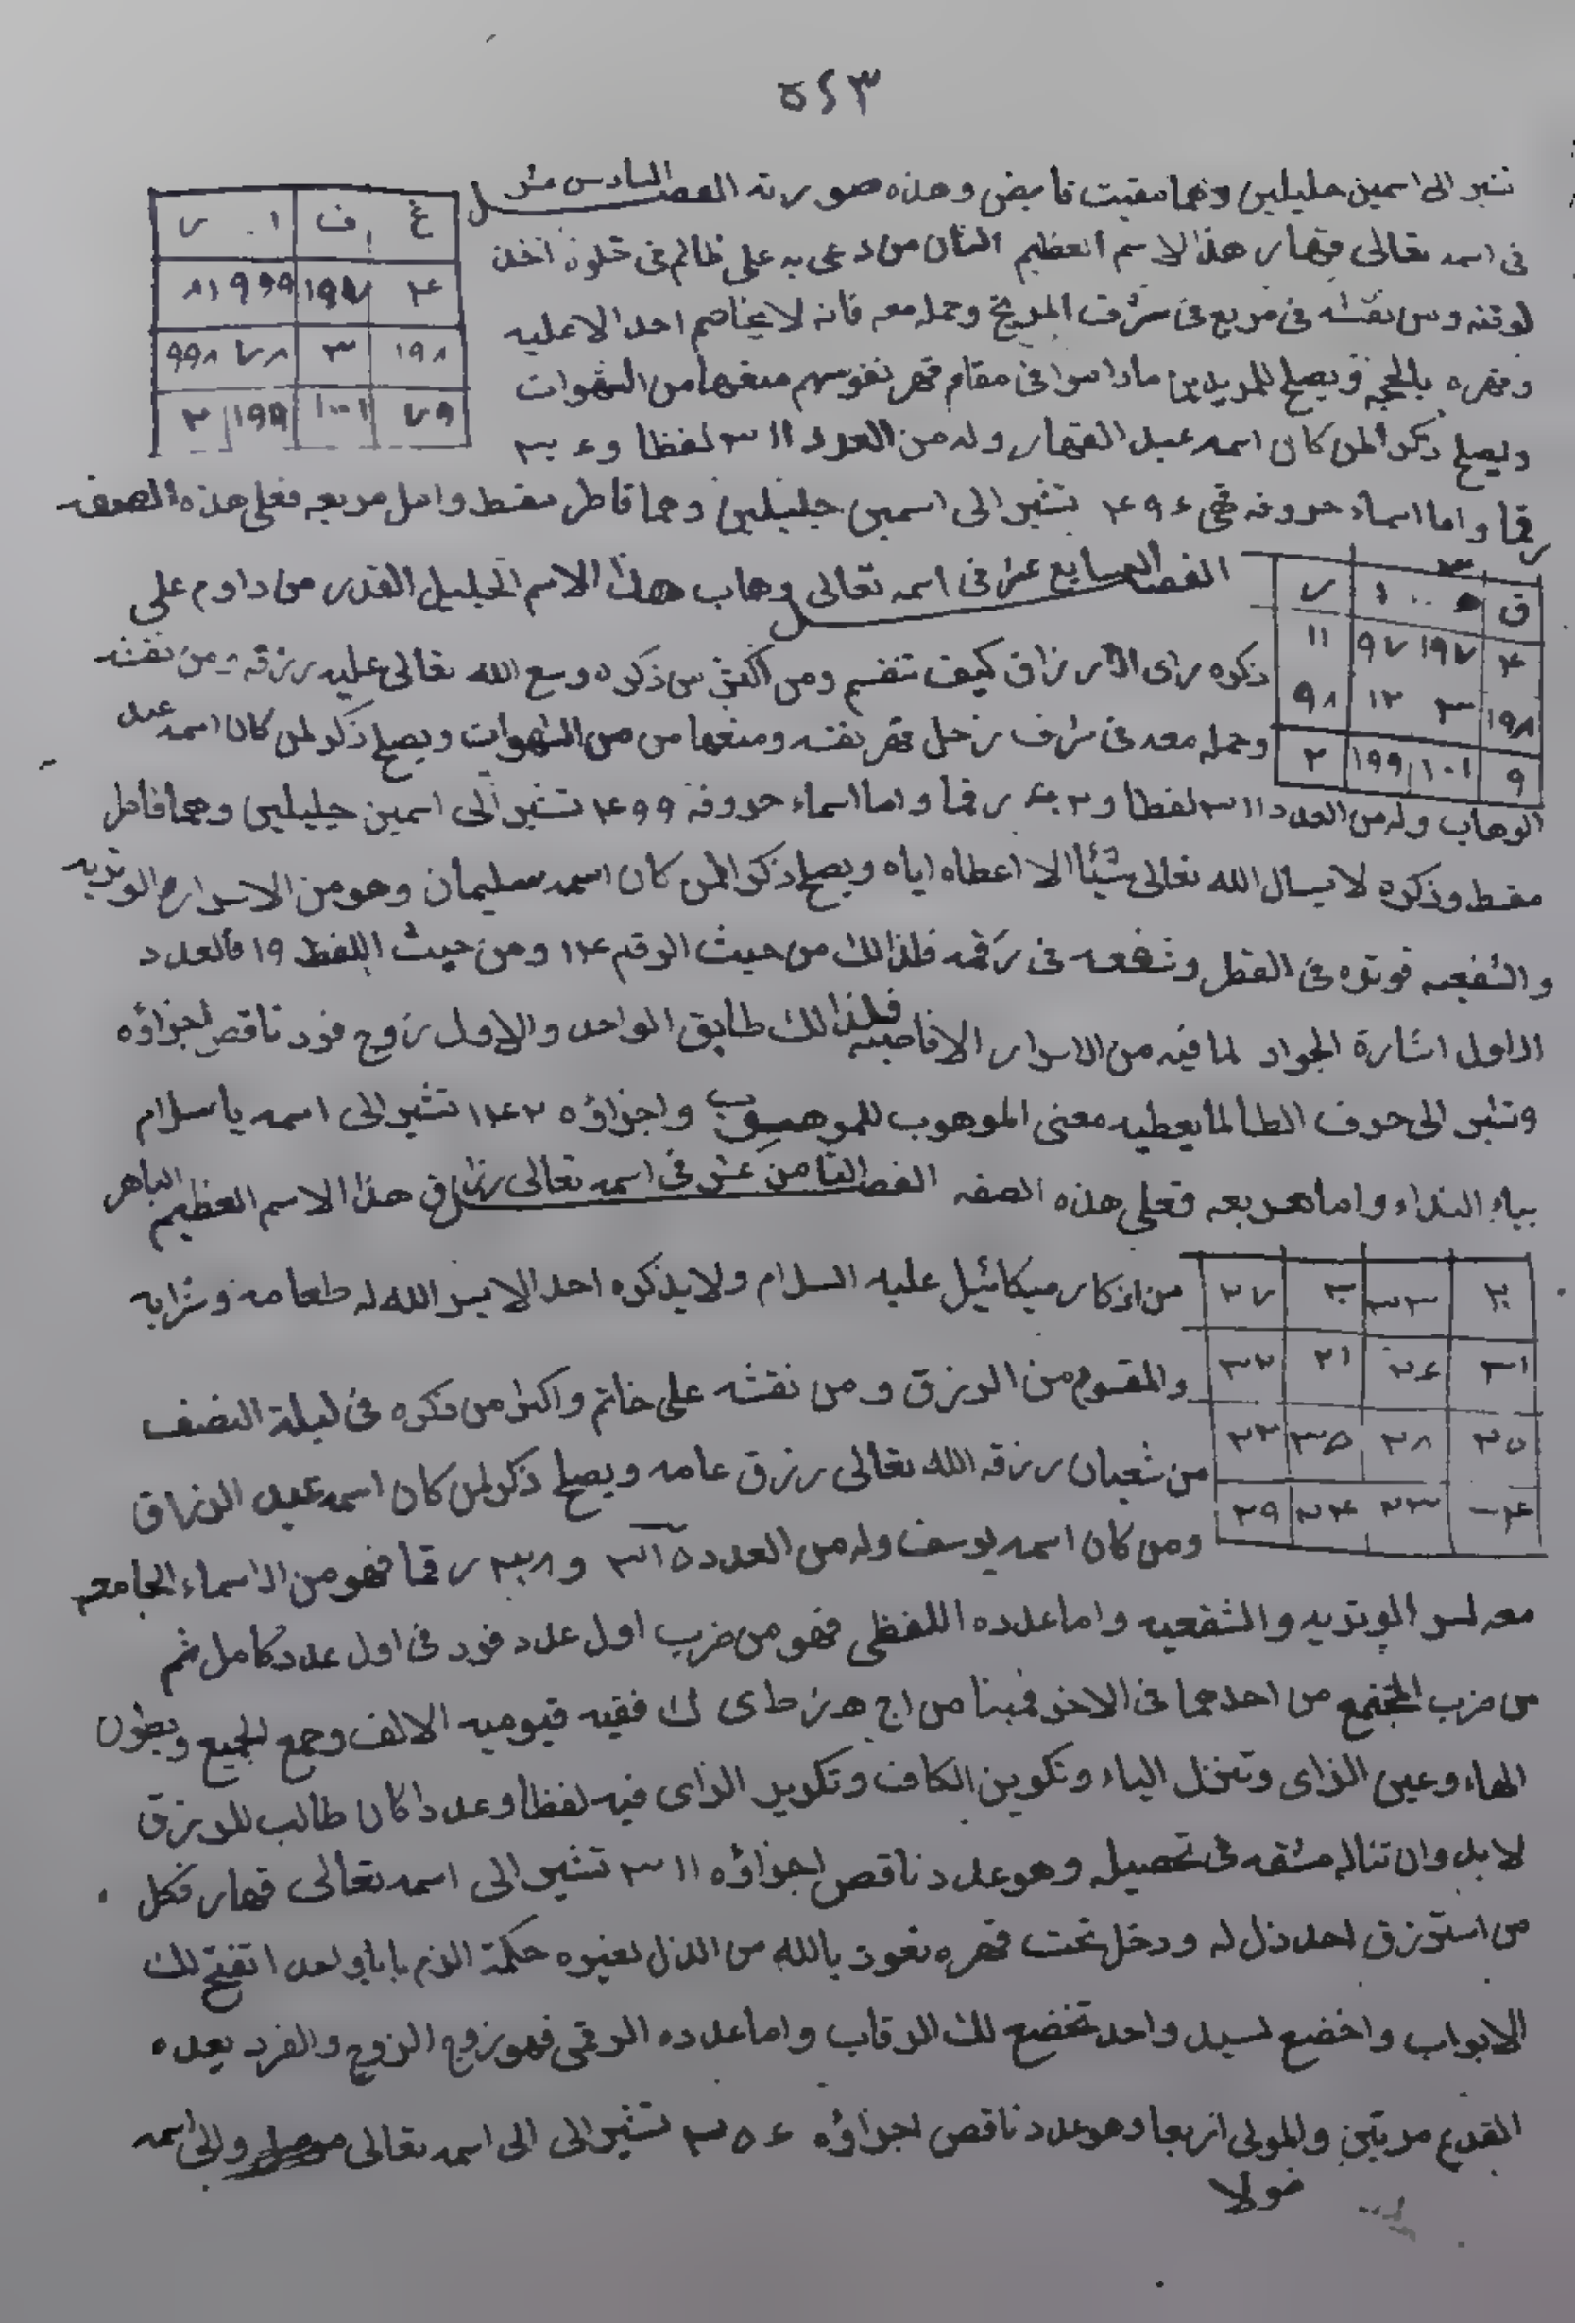 ٥٤٣
تشير الى اسمين جليلين وهما مقيت قابض وهذه صورته الفصل السادس عشر
فى اسمه تعالى قهار هذا الاسم العظيم الشان من دعى به على ظالم فى خلوة اخذ
لوقته ومن نقشه فى مربع فى شرف المريخ وحمله معه فانه لا يخاصم احد الا عليه
وقهره بالحجه ويصلح للمريدين ماداموا فى مقام قهر نفوسهم منعها من الشهوات
ويصلح ذكر المن كان اسمه عبد القهار وله من العدد ٣١١ لفظا و
غ ف ا ر
٤ ١٩٧ ٩٩٩ ٨١
١٩٨ ٣ ٧٨ ٩٩٨
٧٩ ١٠٠١ ١٩٩ ٢
رقما واما اسماء حروفه فهى ٤٩٤ تشير الى اسمين جليلين وهما فاطر مقسط وامل مربعه فعلى هذه الصفه
الفصل السابع عشر فى اسمه تعالى وهاب هذا الاسم الجليل القدر من داوم على
ذكره راى الارزاق كيف تنقسم ومن اكثر من ذكره وسع الله تعالى عليه رزقه ومن نقشه
وحمله معه فى شرف زحل قهر نفسه ومنعها من من الشهوات ويصلح ذكر لمن كان اسمه عبد
ق ه ا ر
٤ ١٩٧ ٩٧ ١١
١٩٨ ٣ ١٢ ٩٨
٩ ١٠١ ١٩٩ ٢
الوهاب وله من العدد ٣١١ لفظا و رقما واما اسماء حروفه ٤٩٩ تشير الى اسمين جليلين وهما فاطر
مقسط وذكره لا يسال الله تعالى شيئا الا اعطاه اياه ويصلح ذكر المن كان اسمه سليمان وهو من الاسرار الوتريه
والشفعيه فوتره فى القطر وشفعه فى رقمه فلذالك من حيث الرقم ١٤ ومن حيث اللفظ ١٩ فالعدد
الاول اشارة الجواد لما فيه من الاسرار الافاضيه فلذالك طابق الواحد والاول زوج فرد ناقص اجزاؤه
وتشير الى حرف الطا لما يعطيه معنى الموهوب للموهوب واجزاؤه ١٤٢ تشير الى اسمه يا سلام
بياء النداء واما مربعه فعلى هذه الصفه الفصل الثامن عشر فى اسمه تعالى رزاق هذا الاسم العظيم الباهر
من اذكار ميكائيل عليه السلام ولا يذكره احد الا يسر الله له طعامه وشرابه
والمقسوم من الرزق ومن نقشه على خاتم واكثر من ذكره فى ليلة النصف
من شعبان رزقه الله تعالى رزق عامه ويصلح ذكر لمن كان اسمه عبد الرزاق
ومن كان اسمه يوسف وله من العدد و رقما فهو من الاسماء الجامعه
٢٧
٣١ ٢٤ ٢١ ٣٢
٢٥ ٢٨ ٣٥ ٢٢
٢٣ ٢٤ ٢٩
معه لسر الوتريه والشفعيه واما عدده اللفظى فهو من ضرب اول عدد فرد فى اول عدد كامل ثم
من ضرب المجتمع من احدهما فى الاخر فمبنا من اج ه ز ط ى ك ففيه قيوميه الالف وجمع الجيم وبطون
الهاء وعين الزاى وتنزل الياء وتكوين الكاف وتكرير الزاى فيه لفظا وعددا كان طالب للرزق
لا بد وان تناله مشقه فى تحصيله وهو عدد ناقص اجزاؤه ٣١١ تشير الى اسمه تعالى قهار فكل
من استرزق احد ذل له ودخل تحت قهره نعوذ بالله من الذل لغيره حكمة الزم بابا واحدا تفتح لك
الابواب واخضع لسيد واحد تخضع لك الرقاب واما عدده الرقمى فهو زوج الزوج والفرد يعده
القدم مرتين والمولى اربعا وهو عدد ناقص اجزاؤه ٣٥٤ تشير الى الى اسمه تعالى والى اسمه
مولا